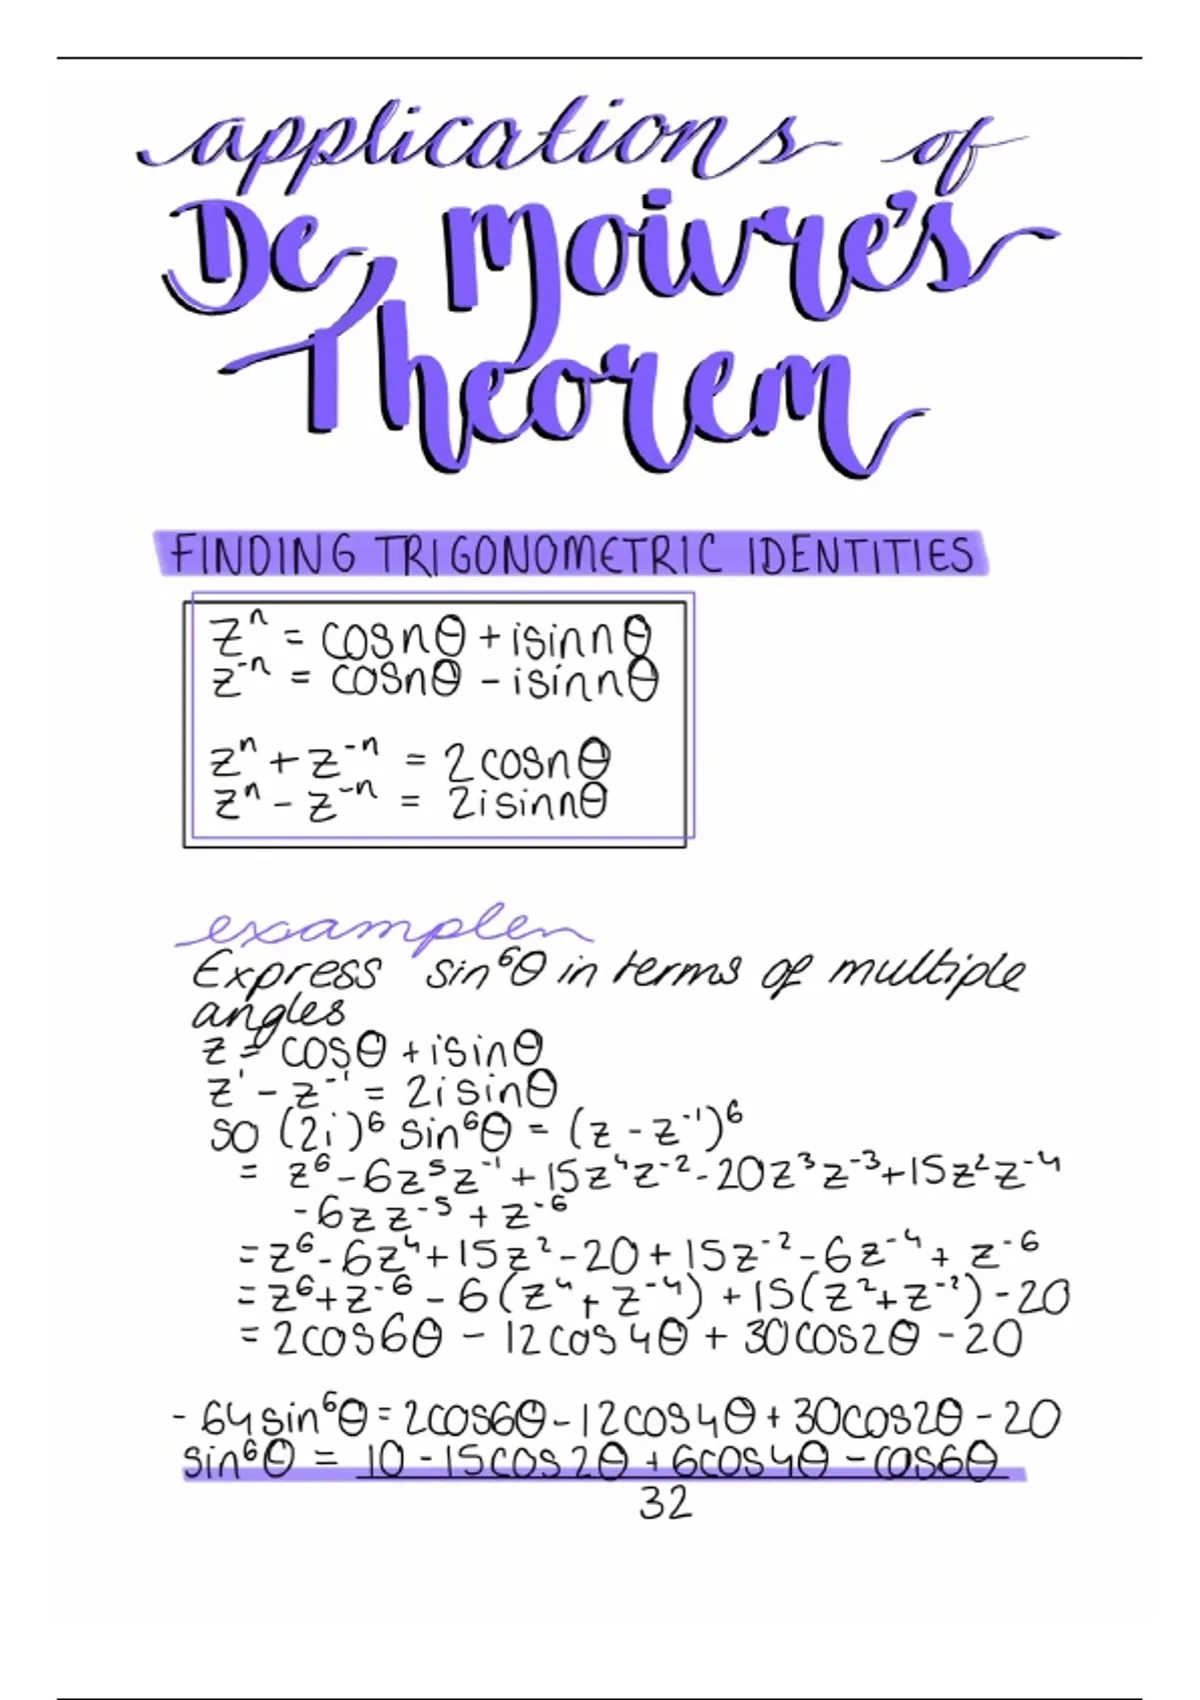 applications of
De Moivre's
Theorem
FINDING TRIGONOMETRIC IDENTITIES
zⁿ = cosnθ + isinnθ
z⁻ⁿ = cosnθ - isinnθ
zⁿ + z⁻ⁿ = 2cosnθ
zⁿ - z⁻ⁿ = 2isinnθ
example
Express sin⁶θ in terms of multiple
angles
z = cosθ + isinθ
z¹ - z⁻¹ = 2isinθ
so (2i)⁶ sin⁶θ = (z - z⁻¹)⁶
= z⁶ - 6z⁵z⁻¹ + 15z⁴z⁻² - 20z³z⁻³ + 15z²z⁻⁴
- 6zz⁻⁵ + z⁻⁶
= z⁶ - 6z⁴ + 15z² - 20 + 15z⁻² - 6z⁻⁴ + z⁻⁶
= z⁶ + z⁻⁶ - 6(z⁴ + z⁻⁴) + 15(z² + z⁻²) - 20
= 2cos6θ - 12cos4θ + 30cos2θ - 20
- 64sin⁶θ = 2cos6θ - 12cos4θ + 30cos2θ - 20
sin⁶θ = 10 - 15cos2θ + 6cos4θ - cos6θ
32